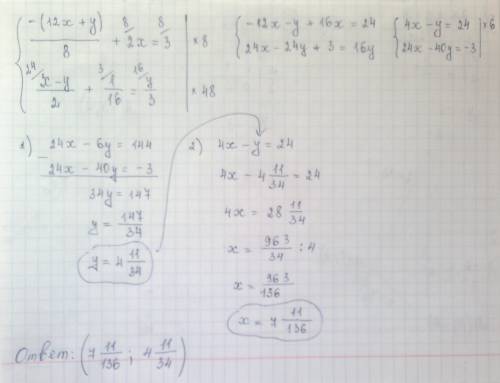 { -(12x + y)/8 + 2x = 3 | ×8
{ (x - y)/2 + 1/16 = y/3 | ×48
8 8
24 3 16
{ -12x - y + 16x = 24
{ 24x - 24y + 3 = 16y
{ 4x - y = 24 | ×6
{ 24x - 40y = -3
1) 24x - 6y = 144
- 24x - 40y = -3
34y = 147
y = 147/34
y = 4 11/34
2) 4x - y = 24
4x - 4 11/34 = 24
4x = 28 11/34
x = 963/34 : 4
x = 963/136
x = 7 11/136
Ответ: (7 11/136 ; 4 11/34)